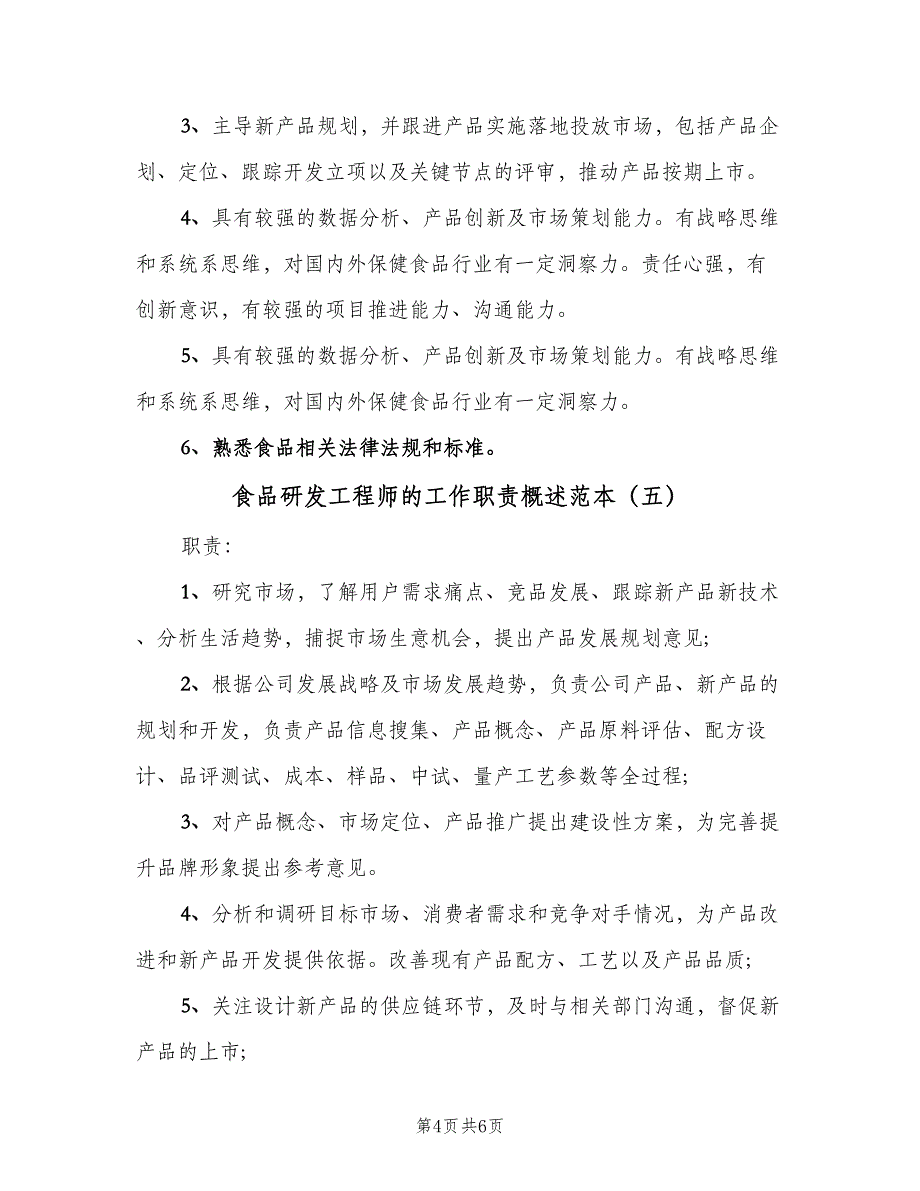 3、主导新产品规划，并跟进产品实施落地投放市场，包括产品企
划、定位、跟踪开发立项以及关键节点的评审，推动产品按期上市。
4、具有较强的数据分析、产品创新及市场策划能力。有战略思维
和系统系思维，对国内外保健食品行业有一定洞察力。责任心强，有
创新意识，有较强的项目推进能力、沟通能力。
5、具有较强的数据分析、产品创新及市场策划能力。有战略思维
和系统系思维，对国内外保健食品行业有一定洞察力。
6、熟悉食品相关法律法规和标准。
食品研发工程师的工作职责概述范本（五）
职责：
1、研究市场，了解用户需求痛点、竞品发展、跟踪新产品新技术
、分析生活趋势，捕捉市场生意机会，提出产品发展规划意见;
2、根据公司发展战略及市场发展趋势，负责公司产品、新产品的
规划和开发，负责产品信息搜集、产品概念、产品原料评估、配方设
计、品评测试、成本、样品、中试、量产工艺参数等全过程;
3、对产品概念、市场定位、产品推广提出建设性方案，为完善提
升品牌形象提出参考意见。
4、分析和调研目标市场、消费者需求和竞争对手情况，为产品改
进和新产品开发提供依据。改善现有产品配方、工艺以及产品品质;
5、关注设计新产品的供应链环节，及时与相关部门沟通，督促新
产品的上市;
第4页共6页